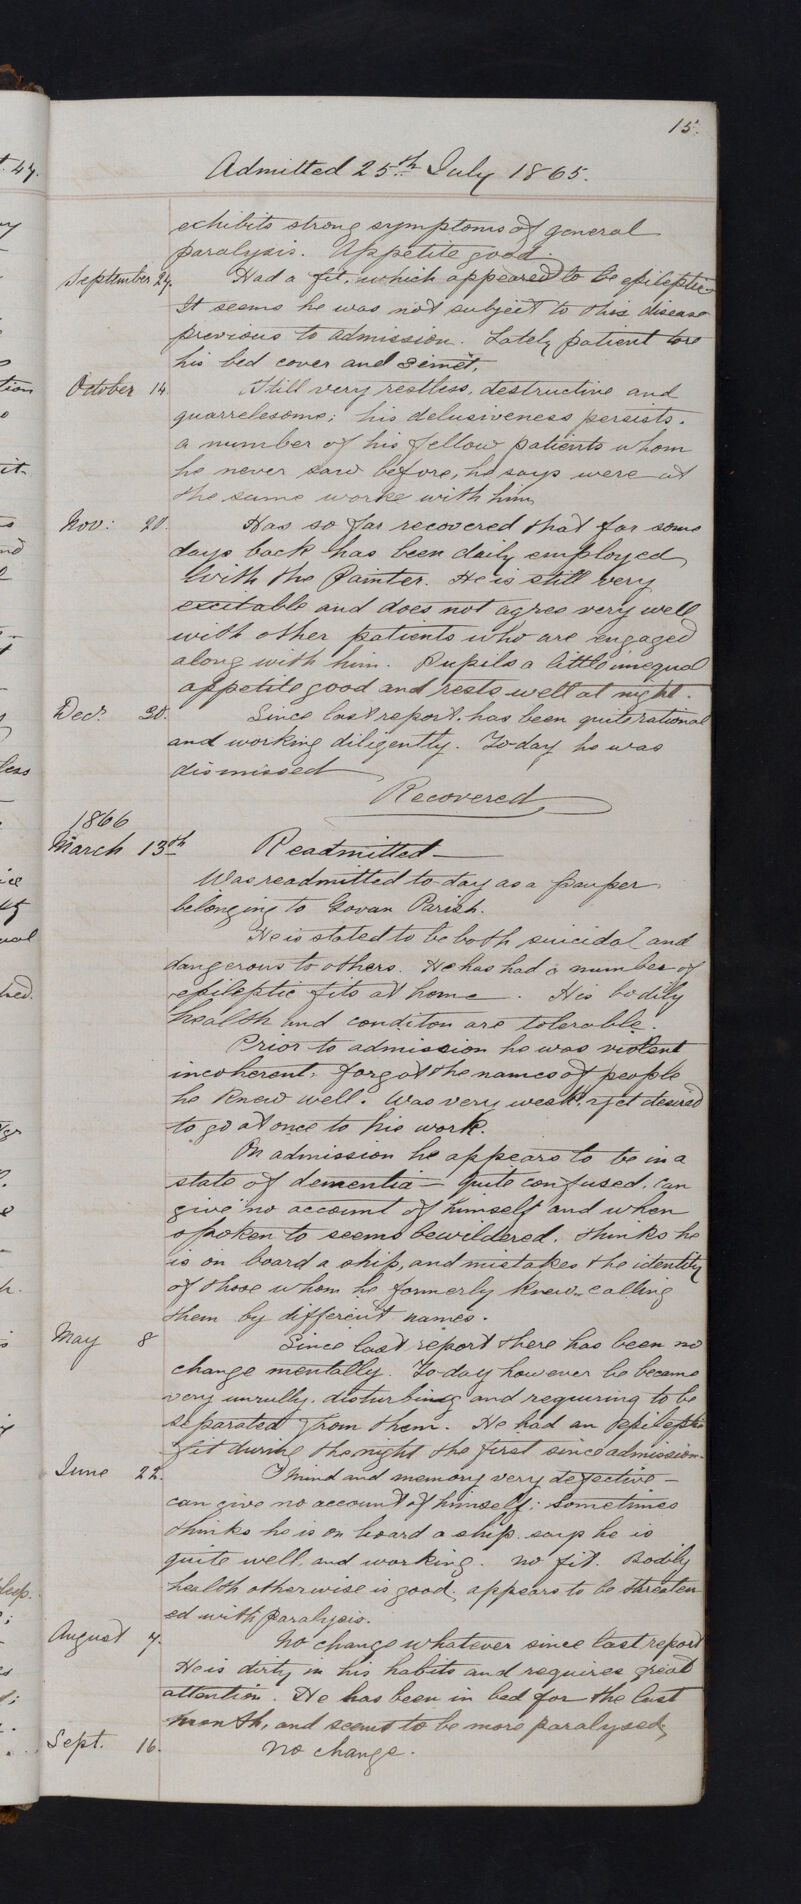 15.
Admitted 25th July 1865.
exhibits strong symptoms of general
paralysis. Appetite good.
September 24. Had a fit, which appeared to be epileptic
It seems he was not subject to this disease
previous to admission. Lately patient tore
his bed cover and
October 14 Still very restless, destructive and
quarrelesome; his delusiveness persists.
a number of his fellow patients whom
he never saw before, he says were at
the same worke with him
Nov: 20. Has so far recovered that for some
days back has been daily employed
with the Painter. He is still very
excitable and does not agree very well
with other patients who are engaged
along with him. Pupils a little unequal
appetite good and rests well at night.
Decr. 30. Since last report has been quite rational
and working diligently. To-day he was
dismissed
Recovered
1866
March 13th Readmitted —
Was readmitted to-day as a pauper
belonging to Govan Parish.
He is stated to be both suicidal and
dangerous to others. He has had a number of
epileptic fits at home. His bodily
health and conditon are tolerable.
Prior to admission he was violent
incoherent, forgot the names of people
he knew well. Was very weak & yet desired
to go at once to his work.
On admission he appears to be in a
state of dementia — quite confused. can
give no account of himself and when
spoken to seems bewildered. thinks he
is on board a ship, and mistakes the identity
of those whom he formerly knew calling
them by different names.
May 8 Since last report there has been no
change mentally. To-day however he became
very unrully, disturbing and requiring to be
separated from them. He had an epileptic
fit during the night the first since admission.
June 22. Mind and memory very defective —
can give no account of himself: sometimes
thinks he is on board a ship. says he is
quite well, and working. no fit. Bodily
health otherwise is good, appears to be threaten
ed with paralysis.
August 7. No change whatever since last report
He is dirty in his habits and requires great
attention. He has been in bed for the last
month, and seems to be more paralysed,
Sept. 16. No change.